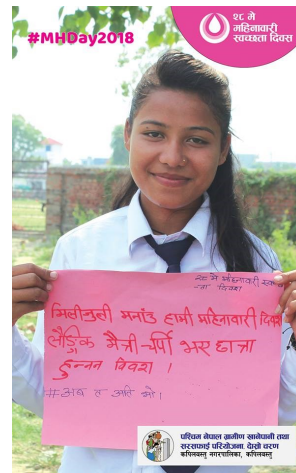 #MHDay2018
२८ मे
महिनावारी
स्वच्छता दिवस
२८ मे महिनावारी स्वच्छ
-ता दिवस
मिलीजुली मनाउँ हामी महिनावारी दिवस
लैङ्गिक मैत्री चर्पी भए छात्रा
हुन्नन विवश ।
#अब त अति भो।
पश्चिम नेपाल ग्रामीण खानेपानी तथा
सरसफाई परियोजना, दोस्रो चरण
कपिलवस्तु नगरपालिका, कपिलवस्तु